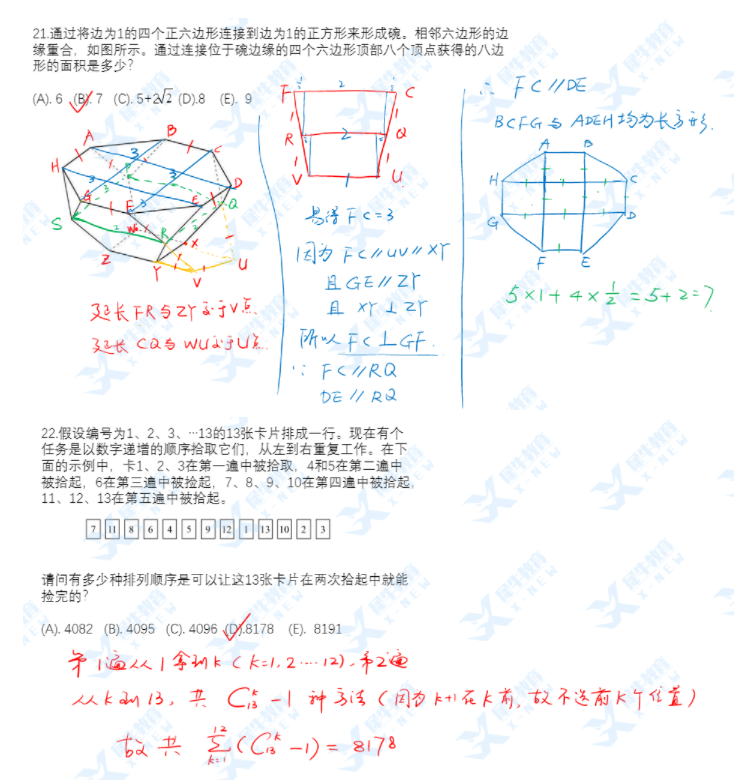 21.通过将边为1的四个正六边形连接到边为1的正方形来形成碗。相邻六边形的边
缘重合，如图所示。通过连接位于碗边缘的四个六边形顶部八个顶点获得的八边
形的面积是多少?
(A). 6 (B). 7 (C). 5+2√2 (D).8 (E). 9
A B C D E F G H S R Q W X Y Z V U
3 3 3 3
1 1
延长FR与ZY交于V点.
延长CQ与WU交于U点.
F 2 C
R 2 Q
V 1 U
易得FC=3
因为FC//UV//XY
且GE//ZY
且XY⊥ZY
所以FC⊥GF.
∵ FC//RQ
DE//RQ
∴ FC//DE
BCFG与ADEH均为长方形.
A B
H C
G D
F E
5×1+4×1/2=5+2=7
22.假设编号为1、2、3、…13的13张卡片排成一行。现在有个
任务是以数字递增的顺序拾取它们，从左到右重复工作。在下
面的示例中，卡1、2、3在第一遍中被拾取，4和5在第二遍中
被拾起，6在第三遍中被捡起，7、8、9、10在第四遍中被拾起，
11、12、13在第五遍中被拾起。
7 11 8 6 4 5 9 12 1 13 10 2 3
请问有多少种排列顺序是可以让这13张卡片在两次拾起中就能
捡完的?
(A). 4082 (B). 4095 (C). 4096 (D).8178 (E). 8191
第1遍从1拿到k(k=1,2…12),第2遍
从k到13,共 C₁₃ᵏ-1 种方法(因为k+1在k前,故不选前k个位置)
故共 ∑ₖ₌₁¹²(C₁₃ᵏ-1)=8178
犀牛教育
X-NEW